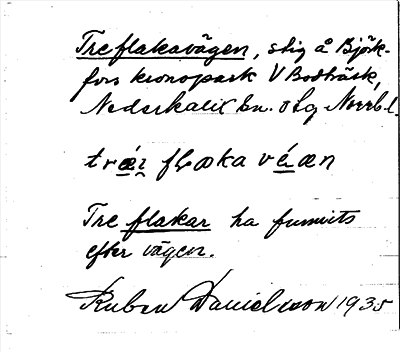 Treflakavägen, stig å Björk-
fors kronopark V Bodträsk,
Nederkalix sn. o lg Norrb. l.
træi flaka væen
Tre flakar ha funnits
efter vägen.
Ruben Danielsson 1935